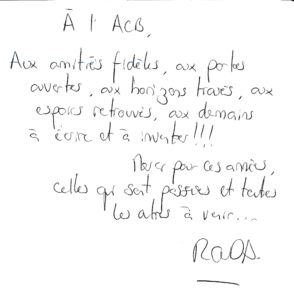 À l'ACB,
Aux amitiés fidèles, aux portes
ouvertes, aux horizons trouvés, aux
espoirs retrouvés, aux demains
à écrire et à inventer !!!
Merci pour ces années,
celles qui sont passées et toutes
les autres à venir...